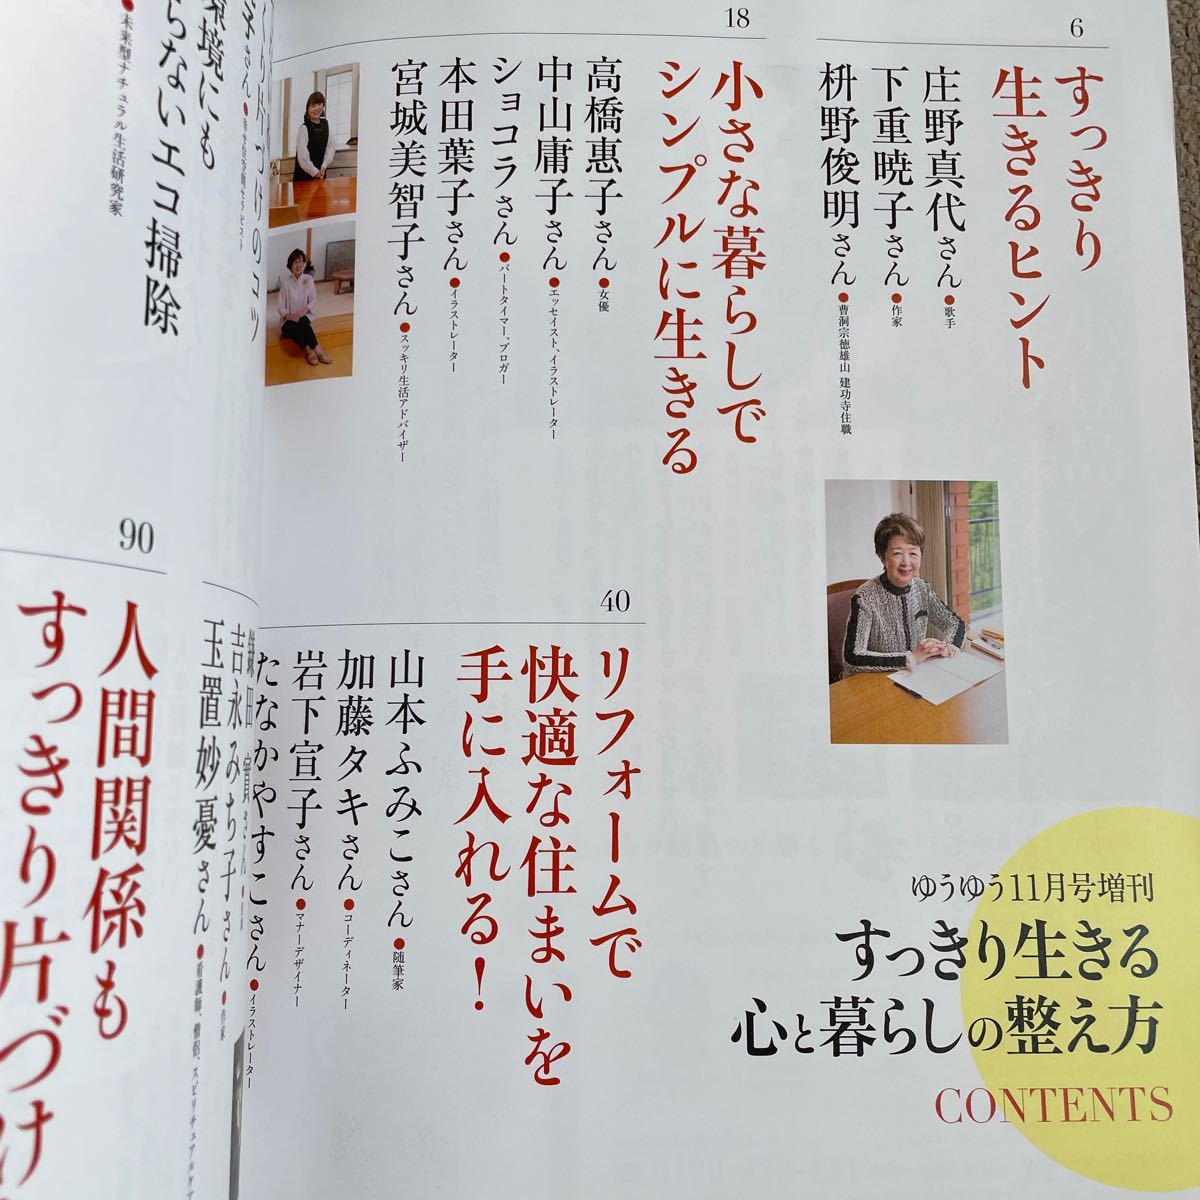 6
すっきり
生きるヒント
庄野真代さん●歌手
下重暁子さん●作家
枡野俊明さん●曹洞宗徳雄山 建功寺住職
18
小さな暮らしで
シンプルに生きる
高橋惠子さん●女優
中山庸子さん●エッセイスト、イラストレーター
ショコラさん●パートタイマー、ブロガー
本田葉子さん●イラストレーター
宮城美智子さん●スッキリ生活アドバイザー
40
リフォームで
快適な住まいを
手に入れる!
山本ふみこさん●随筆家
加藤タキさん●コーディネーター
岩下宣子さん●マナーデザイナー
たなかやすこさん●イラストレーター
ゆうゆう11月号増刊
すっきり生きる
心と暮らしの整え方
CONTENTS
片づけのコツ
さん
環境にも
らないエコ掃除
●未来型ナチュラル生活研究家
90
人間関係も
すっきり片づけ
吉永みち子さん●作家
玉置妙憂さん●看護師、僧侶、スピリチュアルケア